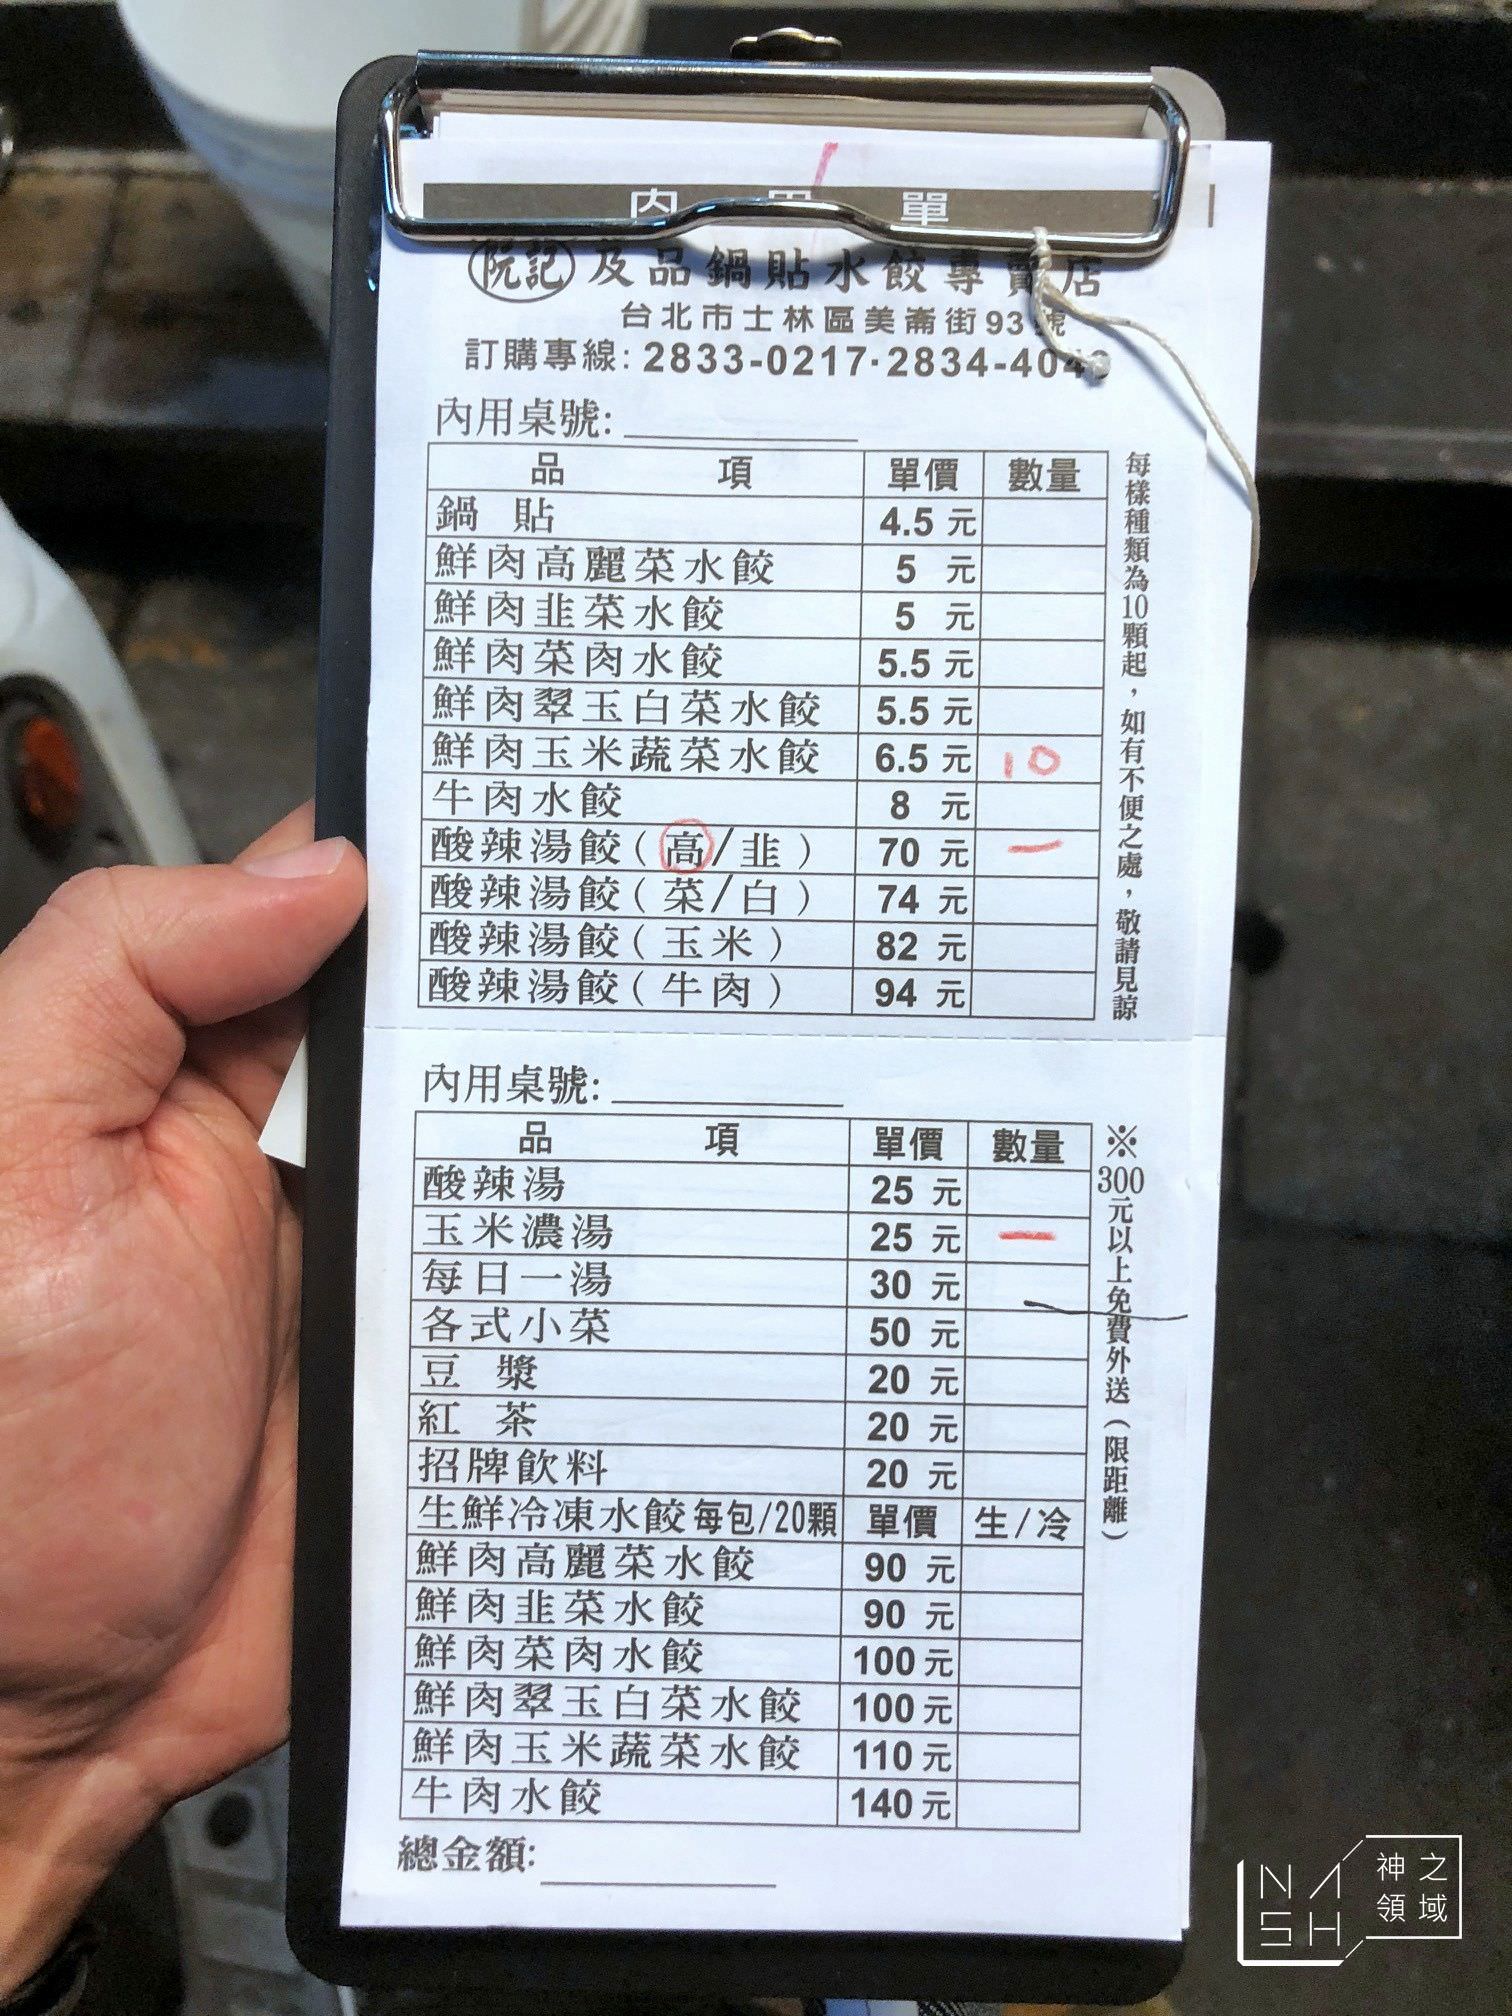 內用單
阮記 及品鍋貼水餃專賣店
台北市士林區美崙街93號
訂購專線: 2833-0217·2834-404
內用桌號:
品項 單價 數量
鍋貼 4.5 元
鮮肉高麗菜水餃 5 元
鮮肉韭菜水餃 5 元
鮮肉菜肉水餃 5.5 元
鮮肉翠玉白菜水餃 5.5 元
鮮肉玉米蔬菜水餃 6.5 元 10
牛肉水餃 8 元
酸辣湯餃(高/韭) 70 元 一
酸辣湯餃(菜/白) 74 元
酸辣湯餃(玉米) 82 元
酸辣湯餃(牛肉) 94 元
每樣種類為10顆起，如有不便之處，敬請見諒
內用桌號:
品項 單價 數量
酸辣湯 25 元
玉米濃湯 25 元 一
每日一湯 30 元
各式小菜 50 元
豆漿 20 元
紅茶 20 元
招牌飲料 20 元
生鮮冷凍水餃每包/20顆 單價 生/冷
鮮肉高麗菜水餃 90 元
鮮肉韭菜水餃 90 元
鮮肉菜肉水餃 100 元
鮮肉翠玉白菜水餃 100 元
鮮肉玉米蔬菜水餃 110 元
牛肉水餃 140 元
※300元以上免費外送(限距離)
總金額:
NASH 神之領域